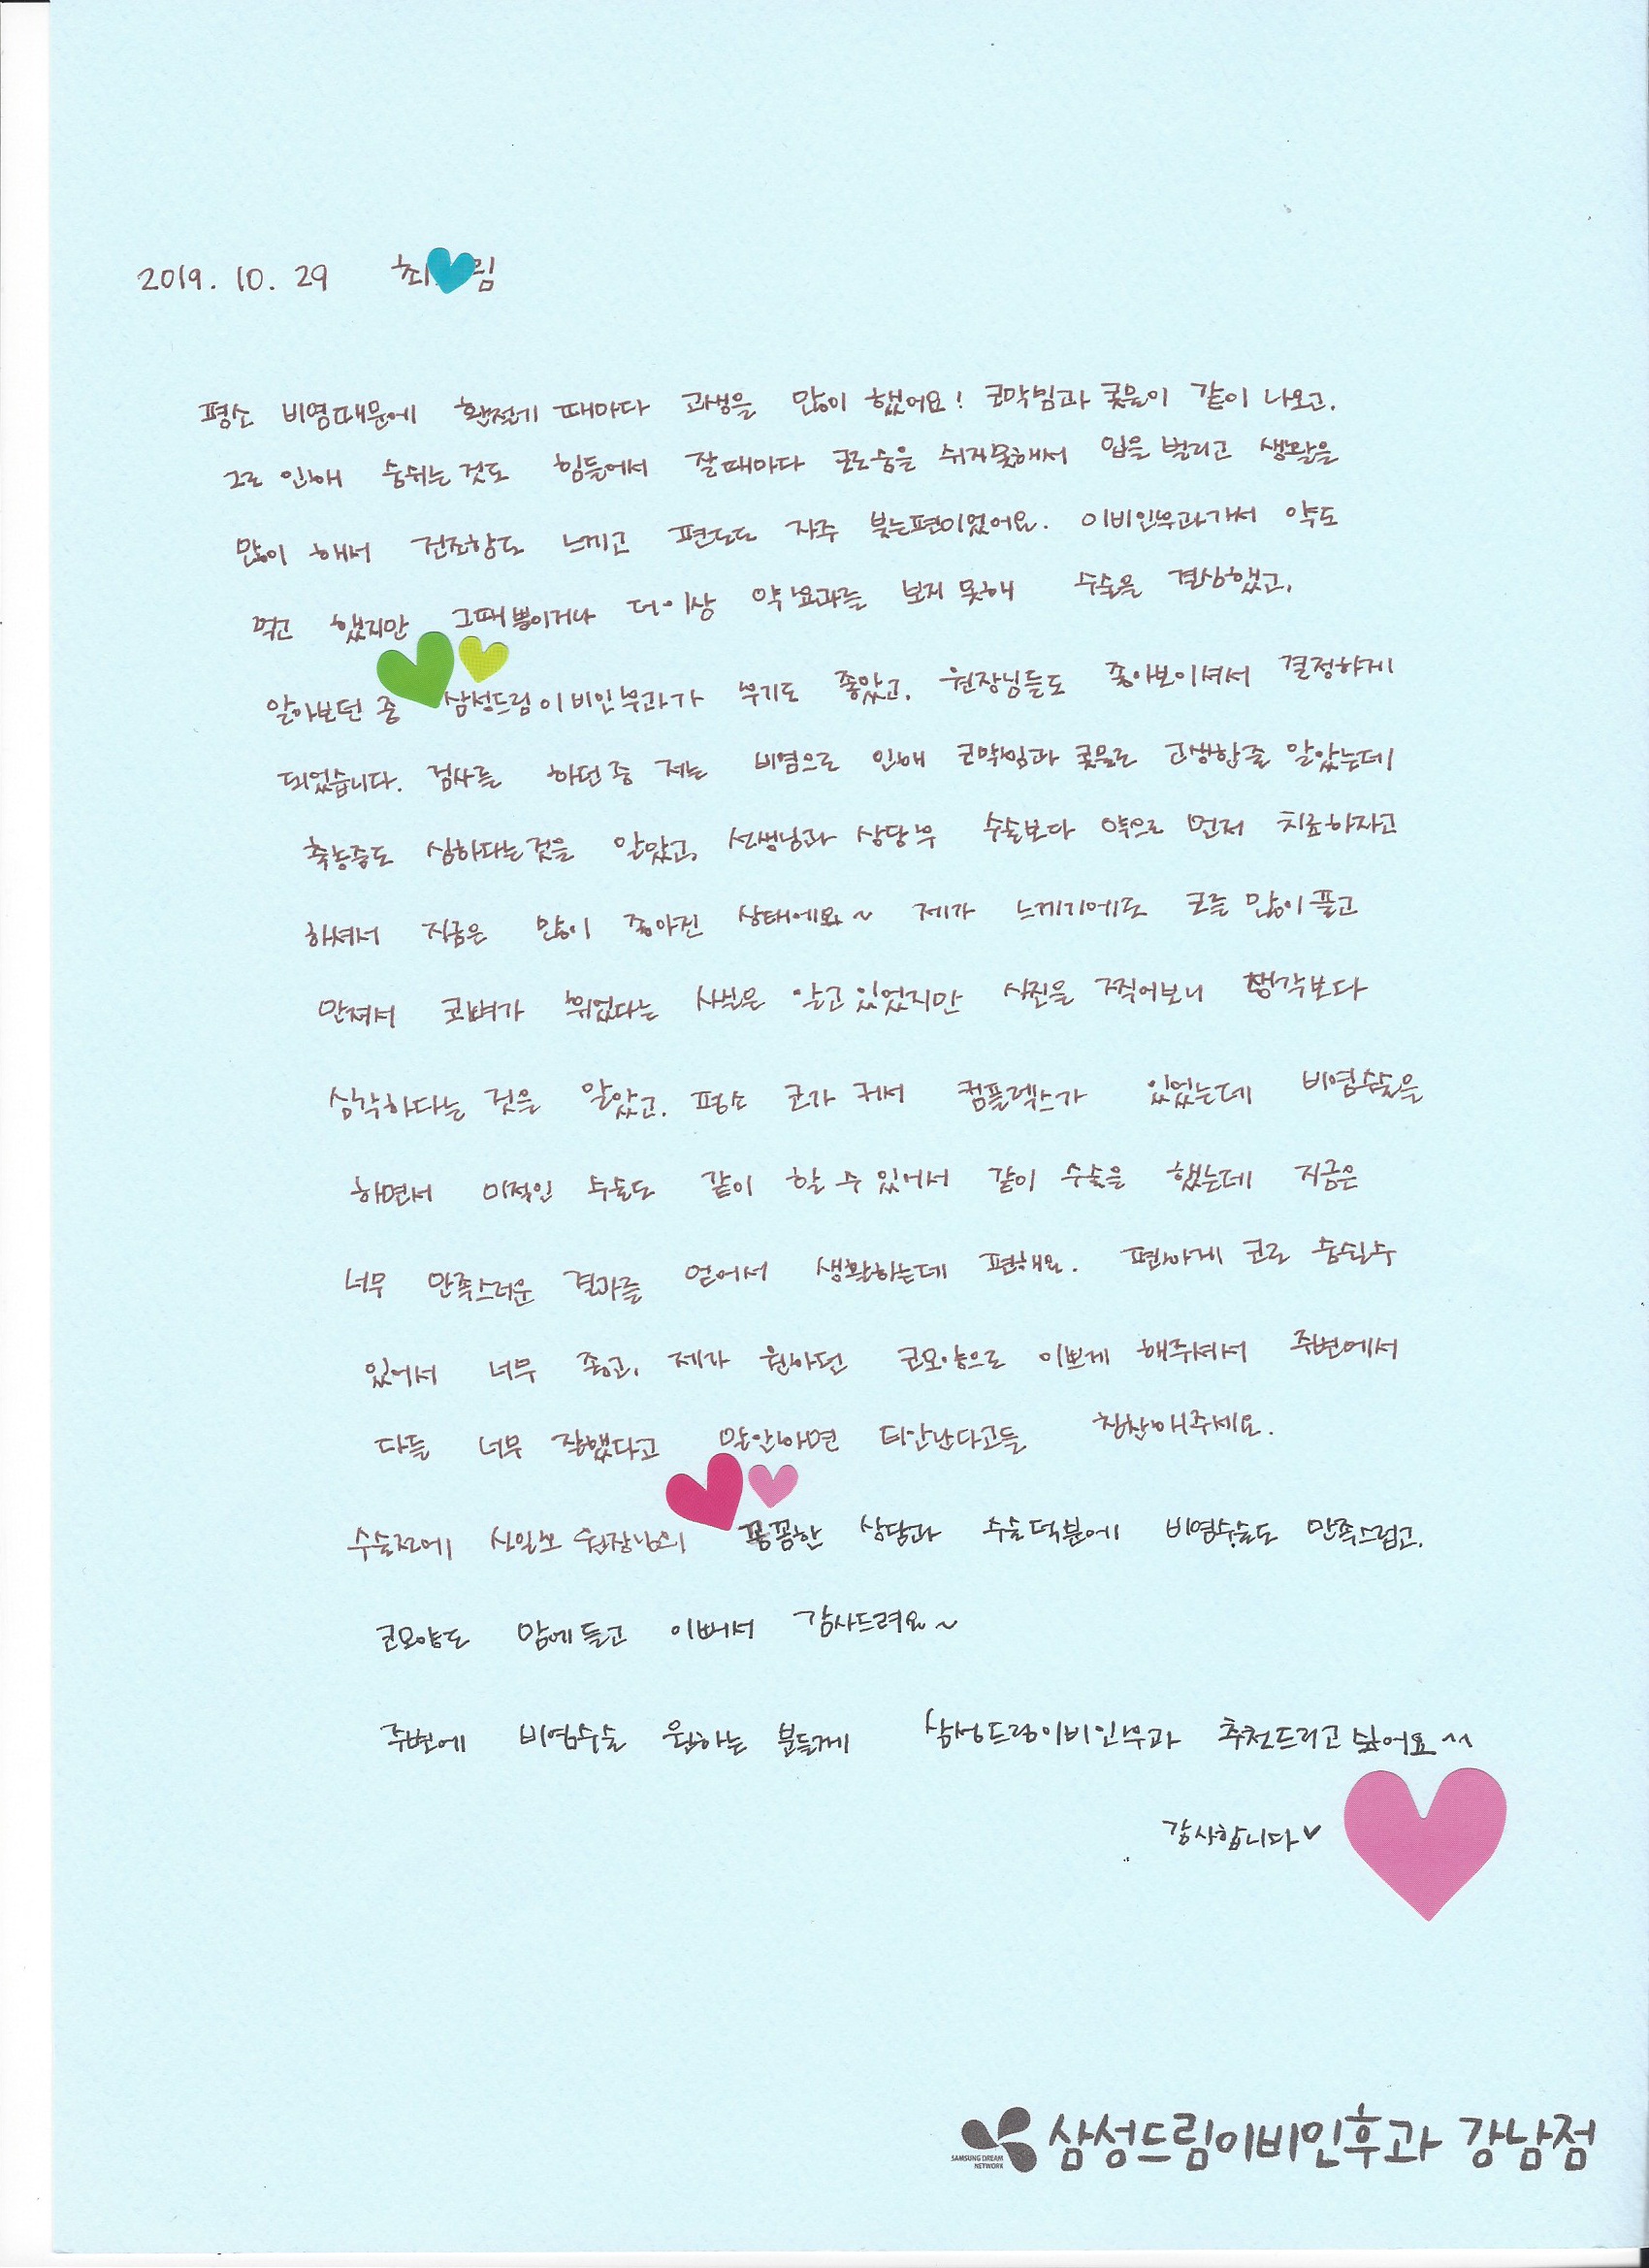 2019. 10. 29 최 림
평소 비염때문에 환절기 때마다 고생을 많이 했어요! 코막힘과 콧물이 같이 나오고,
그로 인해 숨쉬는것도 힘들어서 잘때마다 코로숨을 쉬지못해서 입을 벌리고 생활을
많이 해서 건조함도 느끼고 편도도 자주 붓는편이었어요. 이비인후과가서 약도
먹고 했지만 그때뿐이거나 더이상 약효과를 보지 못해 수술을 결심했고,
알아보던 중 삼성드림이비인후과가 후기도 좋았고, 원장님들도 좋아보이셔서 결정하게
되었습니다. 검사를 하던중 저는 비염으로 인해 코막힘과 콧물로 고생한줄 알았는데
축농증도 심하다는것을 알았고, 선생님과 상담후 수술보다 약으로 먼저 치료하자고
하셔서 지금은 많이 좋아진 상태에요~ 제가 느끼기에도 코를 많이풀고
만져서 코뼈가 휘었다는 사실은 알고있었지만 사진을 찍어보니 생각보다
심각하다는 것을 알았고, 평소 코가 커서 컴플렉스가 있었는데 비염수술을
하면서 미적인 수술도 같이 할 수 있어서 같이 수술을 했는데 지금은
너무 만족스러운 결과를 얻어서 생활하는데 편해요. 편하게 코로 숨쉴수
있어서 너무 좋고, 제가 원하던 코모양으로 이쁘게 해주셔서 주변에서
다들 너무 잘했다고 말안하면 티안난다고들 칭찬해주세요.
수술전에 신일호 원장님의 꼼꼼한 상담과 수술덕분에 비염수술도 만족스럽고,
코모양도 맘에들고 이뻐서 감사드려요~
주변에 비염수술 원하는 분들께 삼성드림이비인후과 추천드리고싶어요^^
감사합니다♥
SAMSUNG DREAM
NETWORK
삼성드림이비인후과 강남점